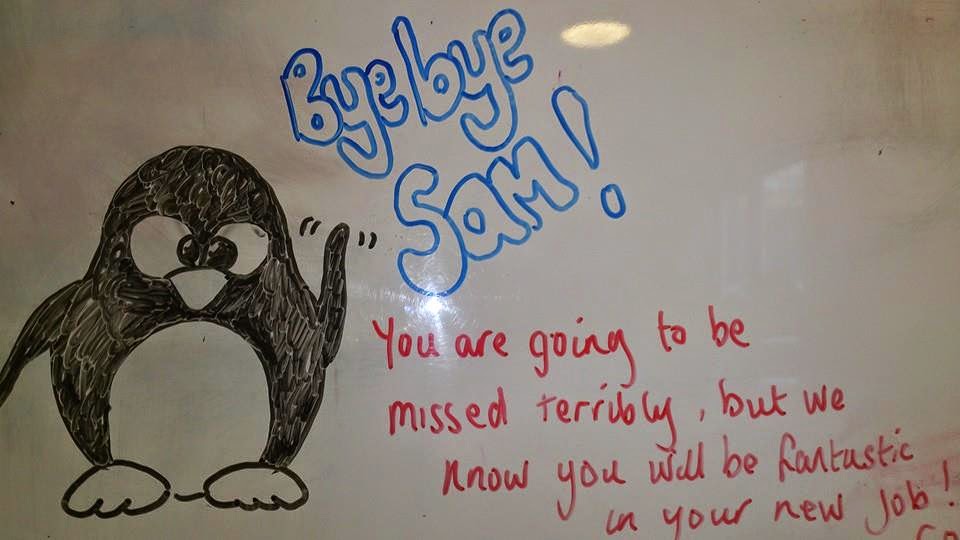 Bye bye
Sam!
You are going to be
missed terribly, but we
know you will be fantastic
in your new job!